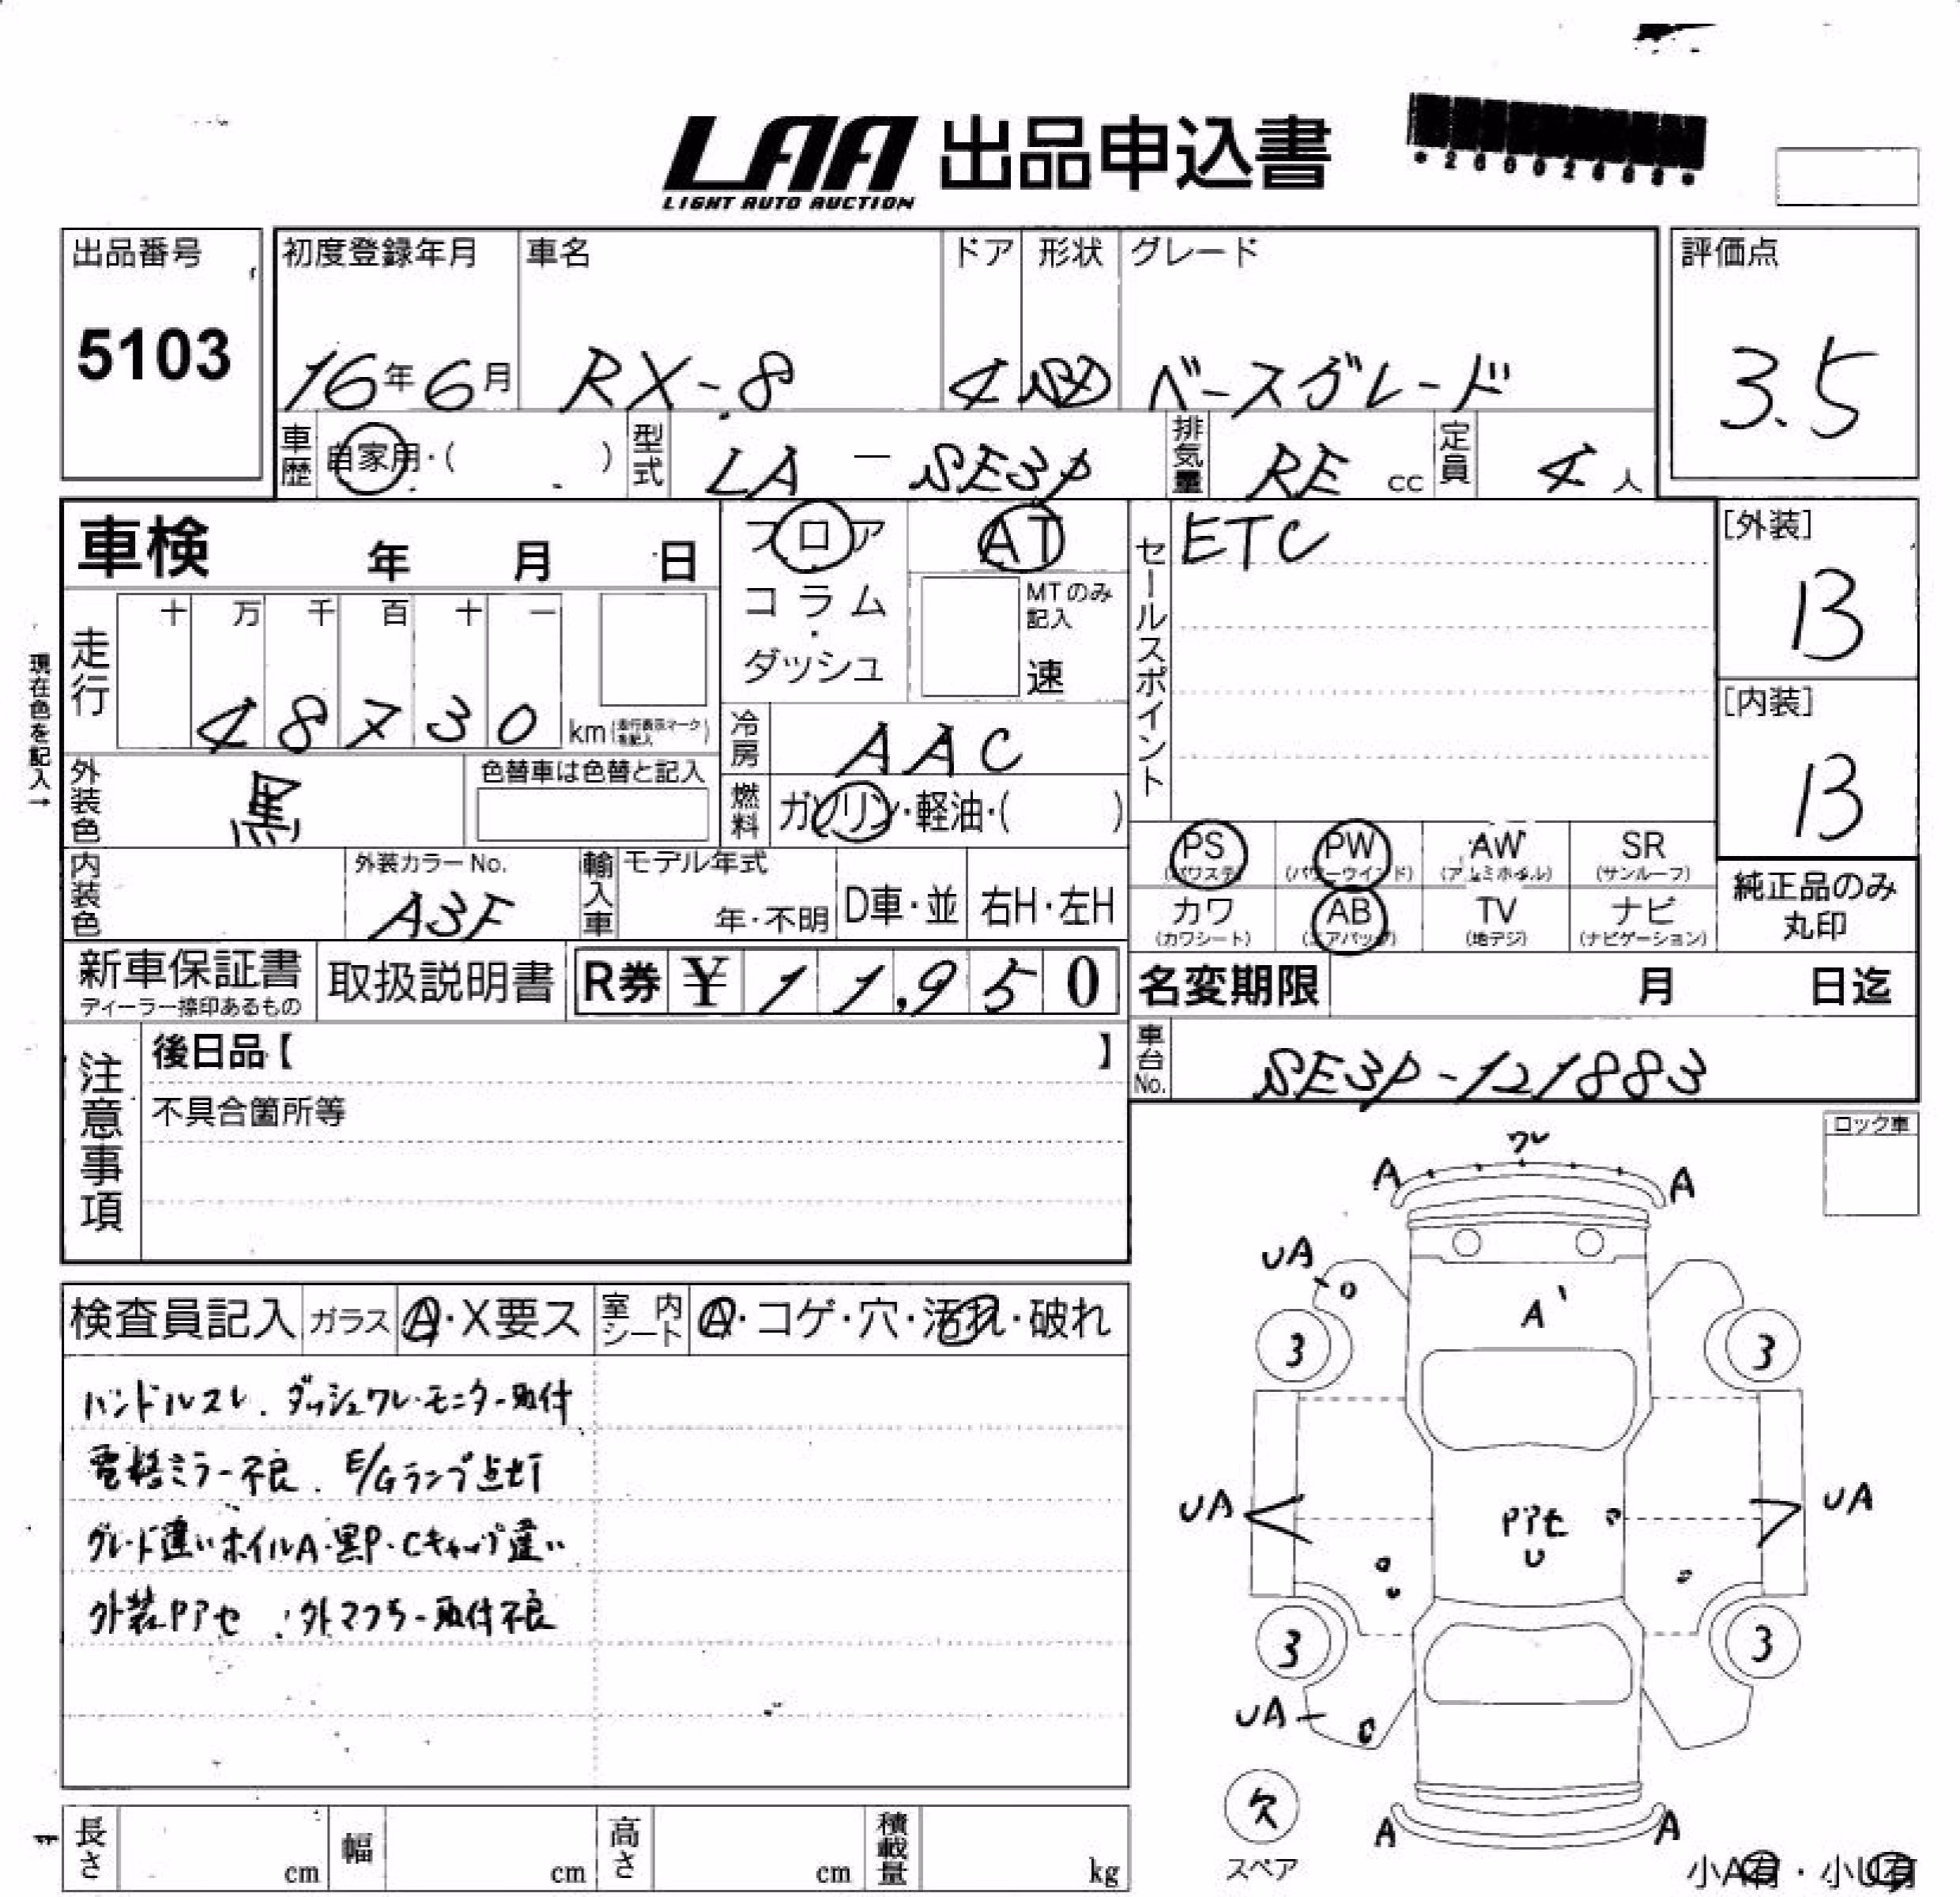 LAA 出品申込書
LIGHT AUTO AUCTION
出品番号
5103
初度登録年月 車名 ドア 形状 グレード
16年6月 RX-8 4 SD ベースグレード
評価点
3.5
車歴 自家用・( ) 型式 LA - SE3P 排気量 RE cc 定員 4 人
車検 年 月 日
フロア AT
コラム・
ダッシュ
MTのみ記入
速
セールスポイント ETC
[外装]
B
[内装]
B
現在色を記入→
走行 十 万 千 百 十 一
48730 km (走行表示マークを記入)
冷房 AAC
外装色 黒 色替車は色替と記入
燃料 ガソリン・軽油・( )
PS (パワステ) PW (パワーウインド) AW (アルミホイル) SR (サンルーフ)
カワ (カワシート) AB (エアバッグ) TV (地デジ) ナビ (ナビゲーション)
純正品のみ
丸印
内装色 外装カラーNo. A3F 輸入車 モデル年式 年・不明 D車・並 右H・左H
新車保証書 ディーラー捺印あるもの 取扱説明書 R券 ¥ 11,950
名変期限 月 日迄
車台No. SE3P-121883
注意事項
後日品【 】
不具合箇所等
ロック車
検査員記入 ガラス A・X要ス 室内シート A・コゲ・穴・汚れ・破れ
ハンドルスレ . ダッシュワレ・モニター取付
電格ミラー不良 . E/Gランプ点灯
グレード違いホイルA・黒P・Cキャップ違い
外装Pアセ . 外マフラー取付不良
ワレ
A A
UA
A'
3 3
UA Pアセ UA
U
3 3
UA
欠
スペア
A A
小A有・小U有
長さ cm 幅 cm 高さ cm 積載量 kg